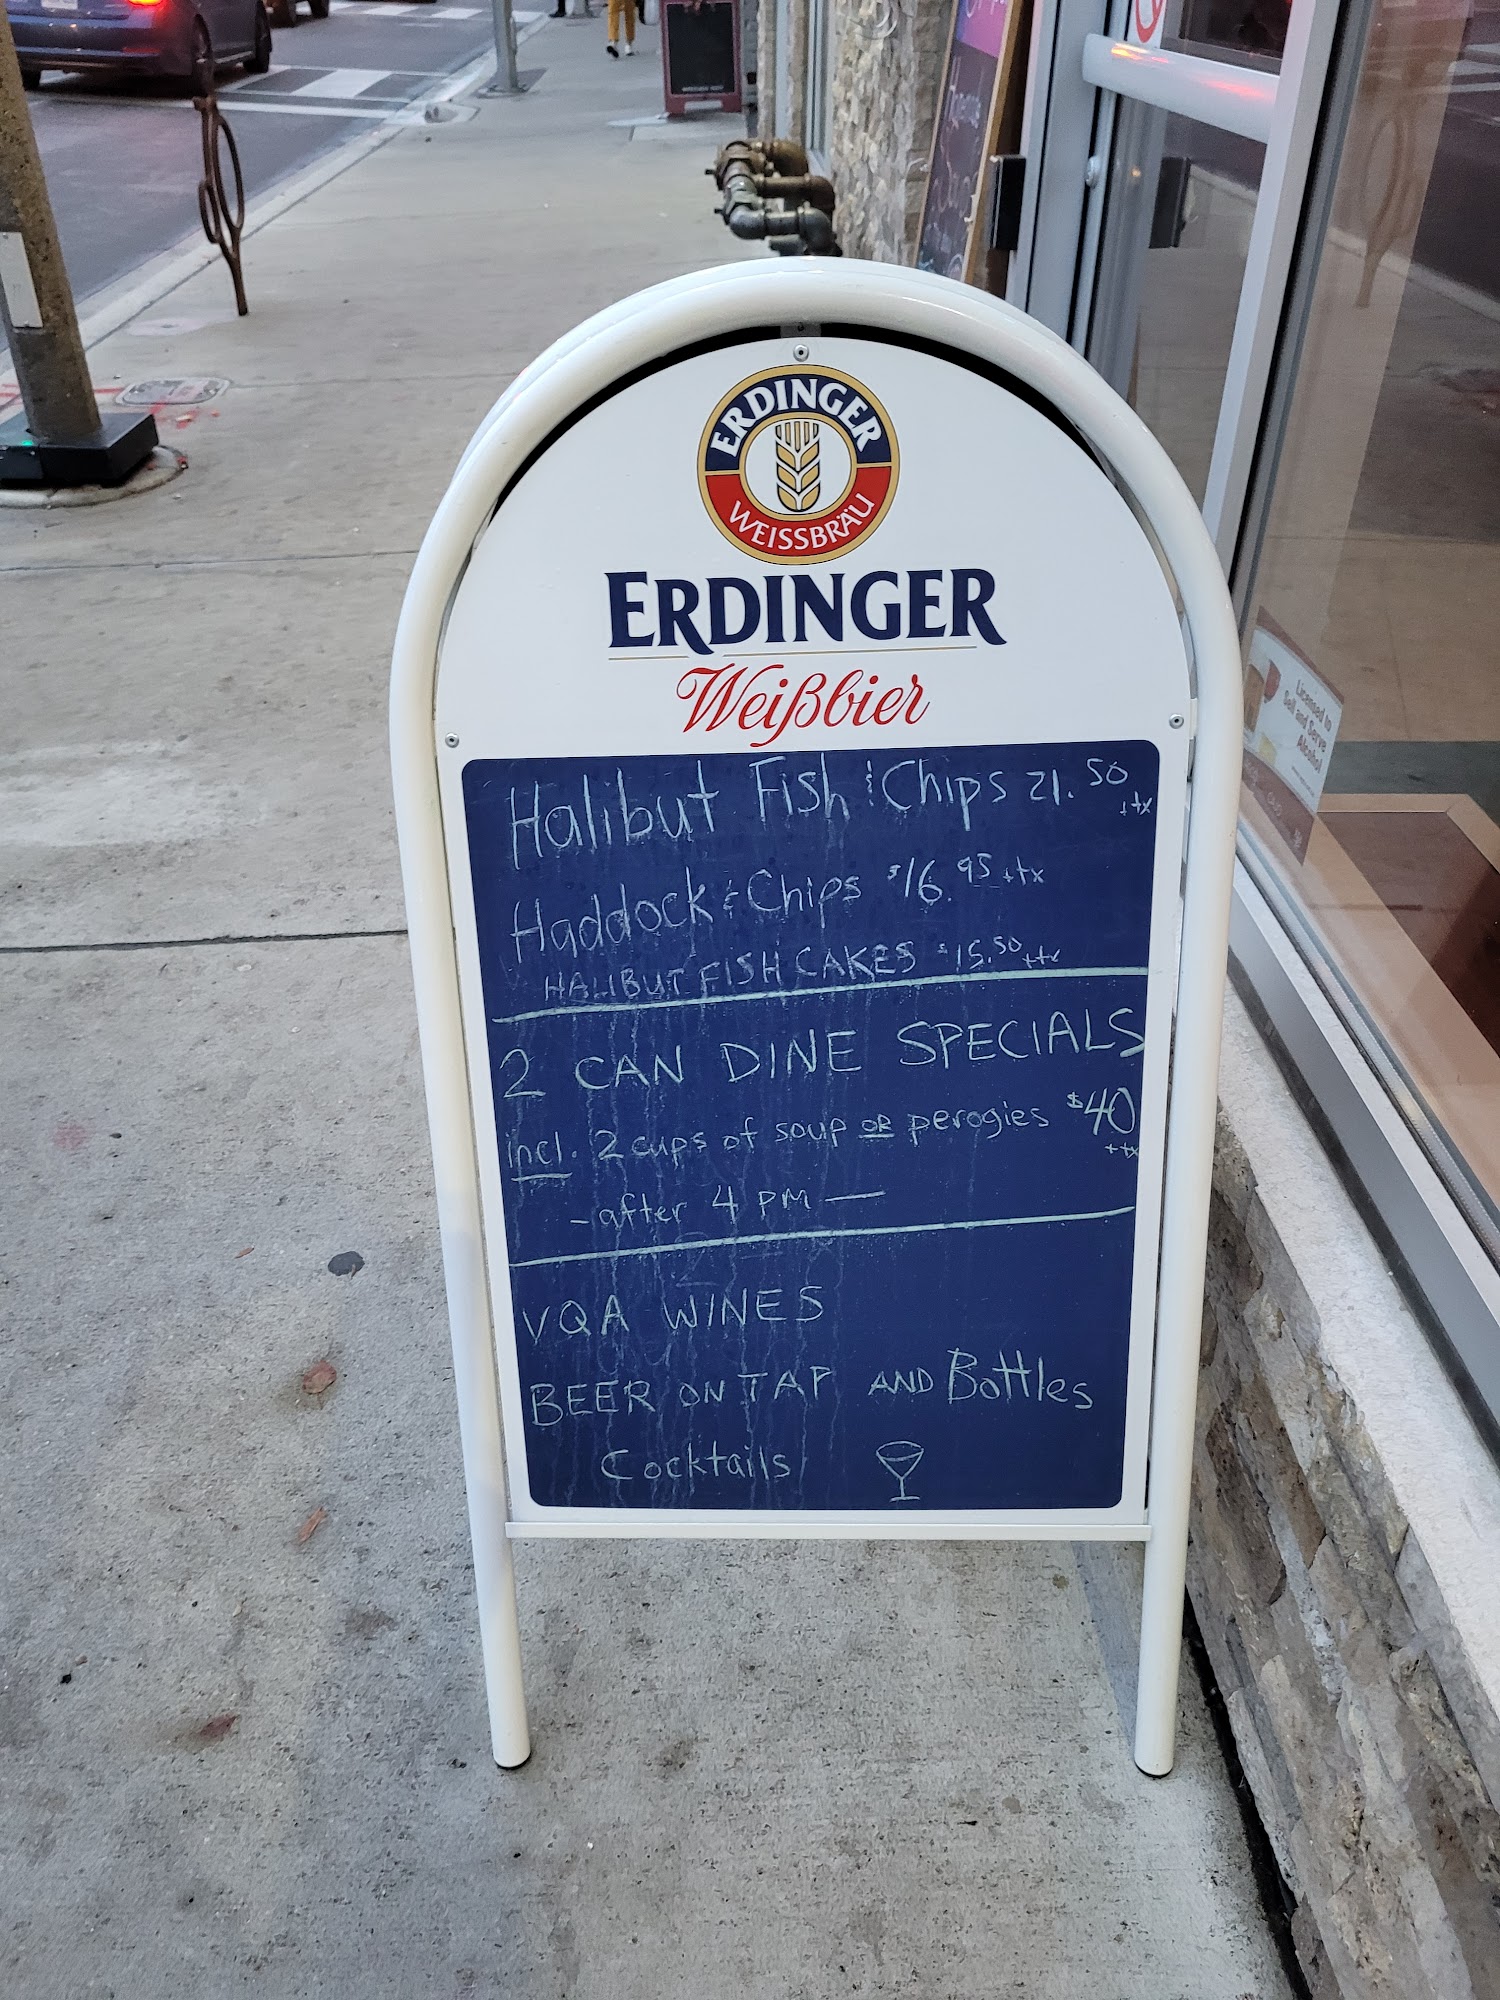 ERDINGER
WEISSBRÄU
ERDINGER
Weißbier
Halibut Fish & Chips 21.50 +tx
Haddock & Chips $16.95 +tx
HALIBUT FISH CAKES $15.50 +tx
2 CAN DINE SPECIALS
incl. 2 cups of soup OR perogies $40 +tx
- after 4 pm —
VQA WINES
BEER ON TAP AND Bottles
Cocktails
Licensed to
Sell and Serve
Alcohol